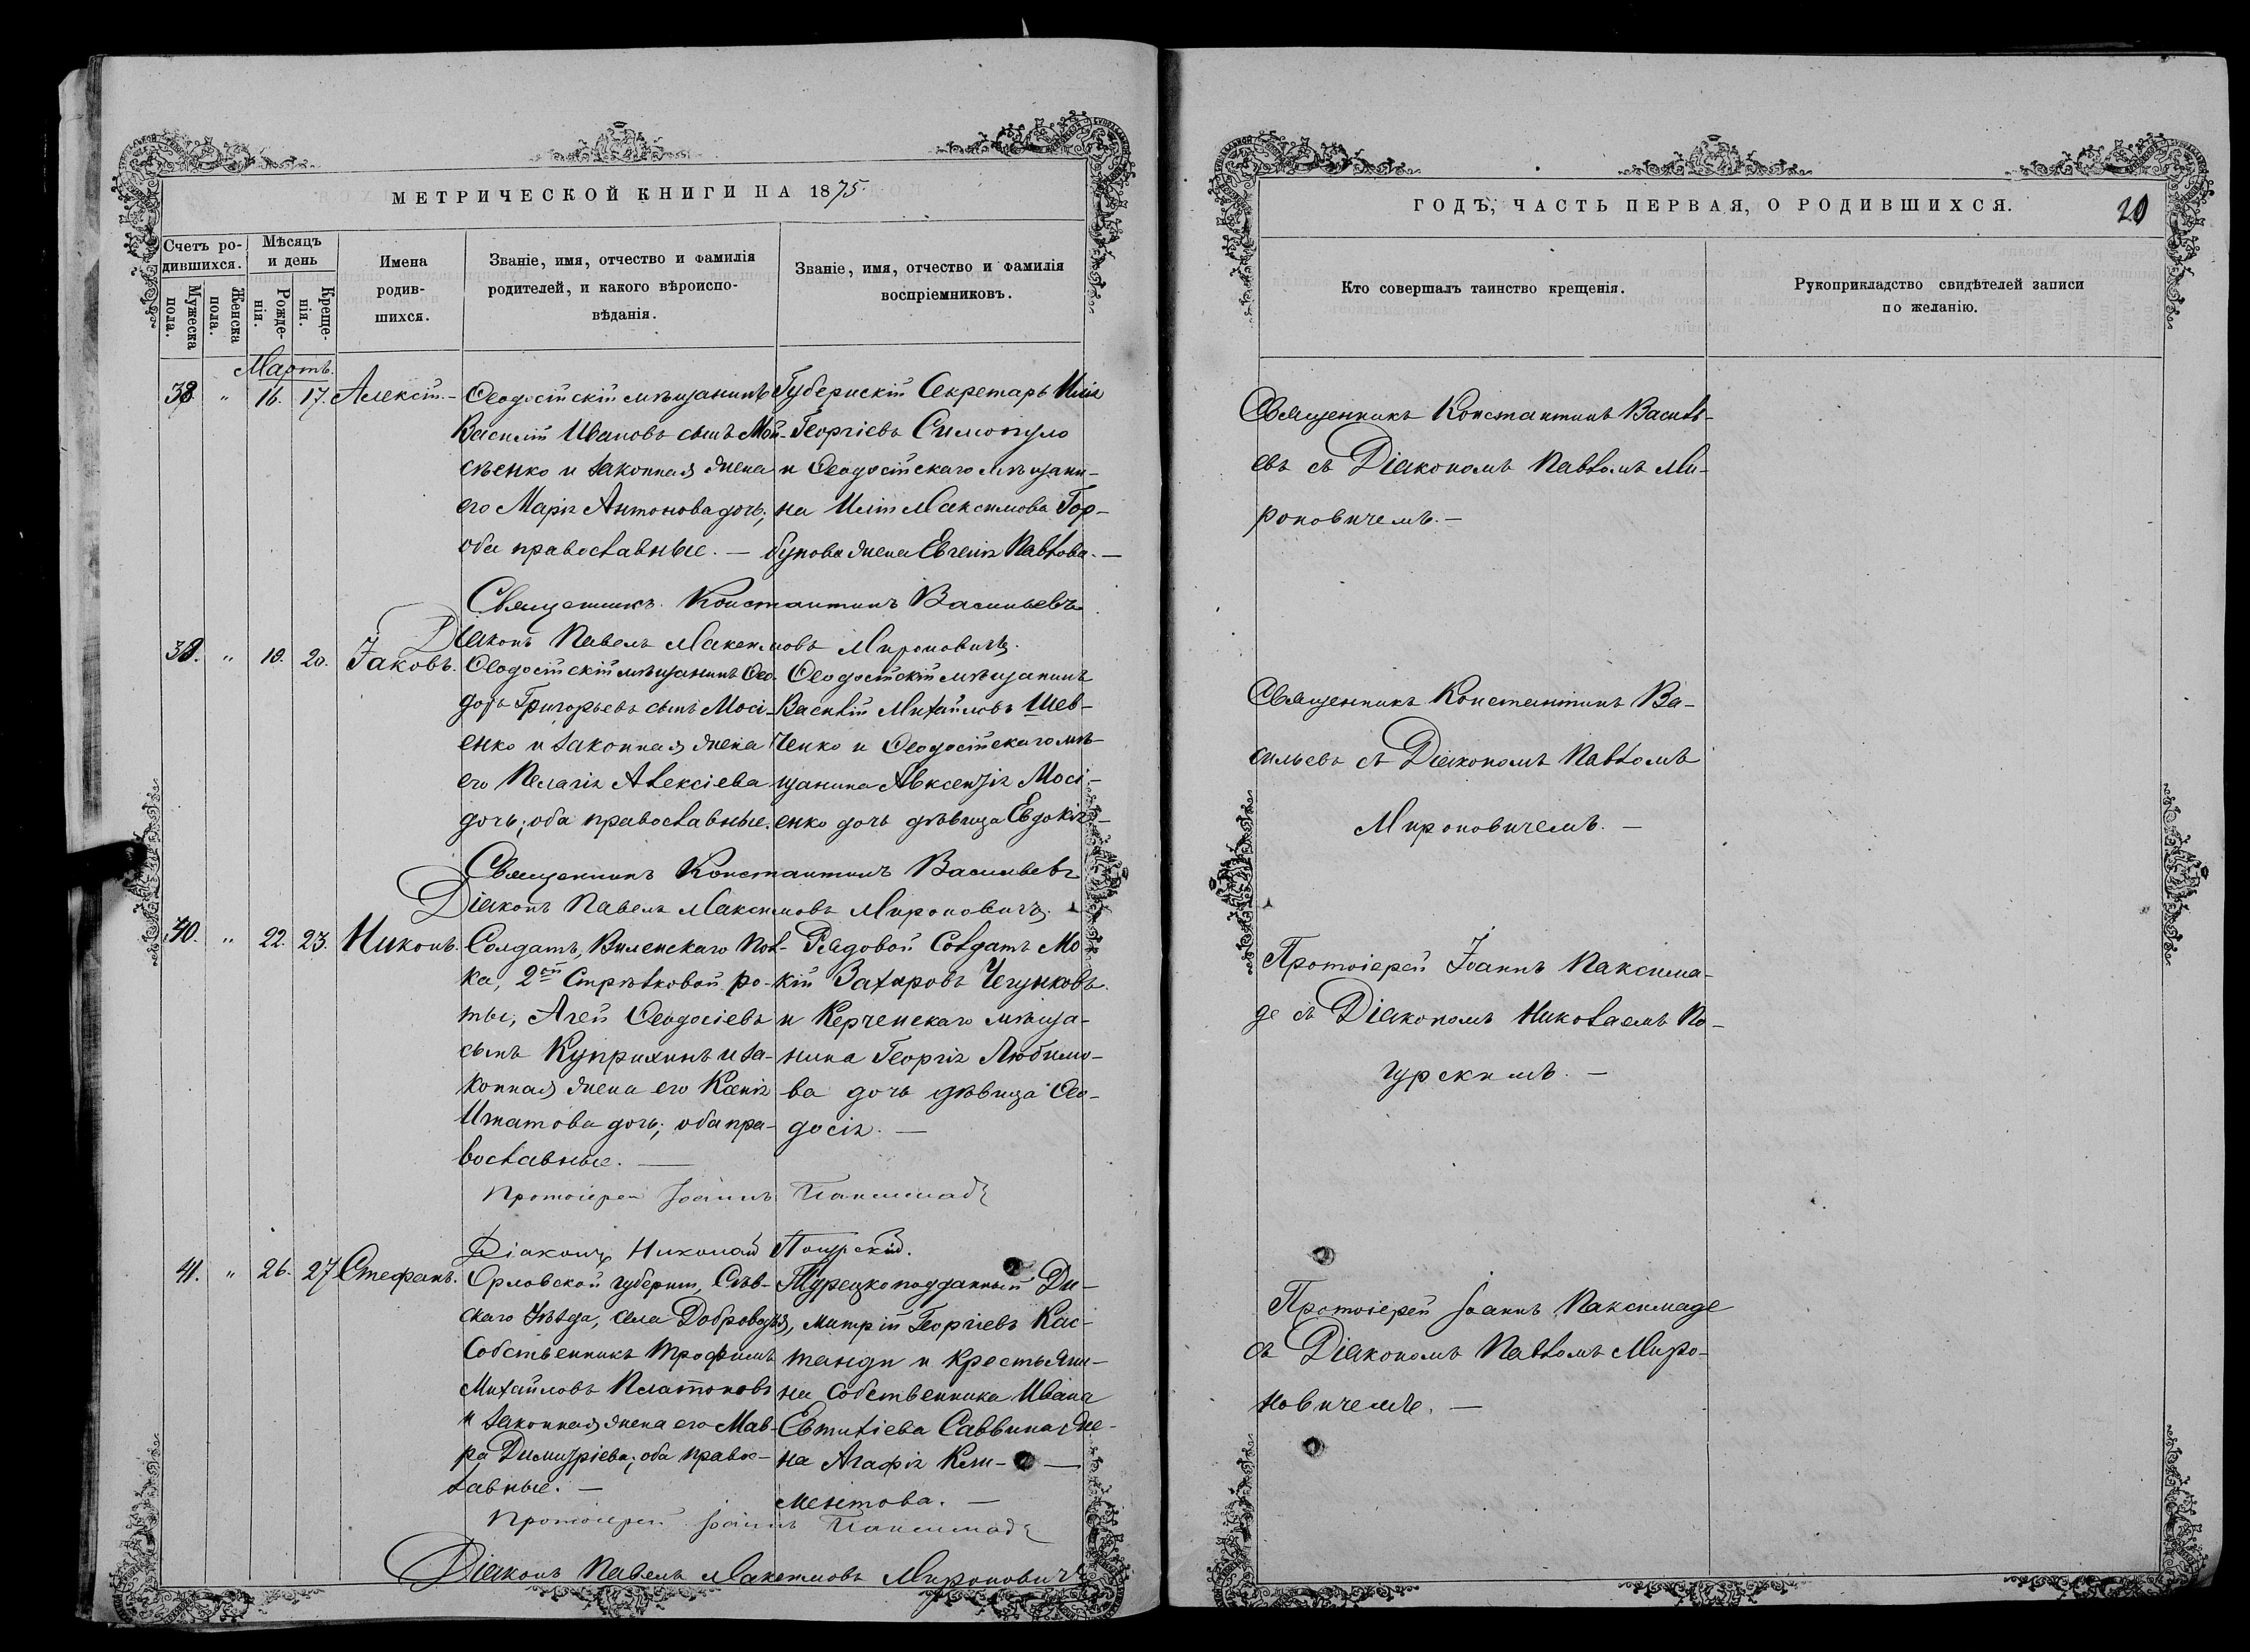 МЕТРИЧЕСКОЙ КНИГИ НА 1875.
Счетъ ро-
дившихся.
Мужеска
пола.
Женска
пола.
Мѣсяцъ
и день
Рожде-
нія.
Креще-
нія.
Имена
родив-
шихся.
Званіе, имя, отчество и фамилія
родителей, и какого вѣроиспо-
вѣданія.
Званіе, имя, отчество и фамилія
воспріемниковъ.
Мартъ.
38 " 16. 17. Алексій.-
Ѳеодосійскій мѣщанинъ
Василій Ивановъ сынъ Мой-
сѣенко и законная жена
его Марія Антонова дочь;
оба православные. —
Губернскій Секретарь Илія
Георгіевъ Симопуло
и Ѳеодосійскаго мѣщани-
на Иліи Максимова Гор-
бунова жена Евгенія Павлова. —
Священникъ Константинъ Васильевъ
Діаконъ Павелъ Максимовъ Мироновичъ.
39. " 19. 20. Іаковъ.
Ѳеодосійскій мѣщанинъ Ѳео-
доръ Григорьевъ сынъ Мосі-
енко и законная жена
его Пелагія Алексіева
дочь; оба православные.
Ѳеодосійскій мѣщанинъ
Василій Михайловъ Шев-
ченко и Ѳеодосійскаго мѣ-
щанина Авксентія Мосі-
енко дочь дѣвица Евдокія —
Священникъ Константинъ Васильевъ
Діаконъ Павелъ Максимовъ Мироновичъ.
40. " 22. 23. Никонъ.
Солдатъ, Виленскаго Пол-
ка, 2ой Стрѣлковой ро-
ты, Агей Ѳеодосіевъ
сынъ Куприхинъ и за-
конная жена его Ксенія
Игнатова дочь; оба пра-
вославные. —
Рядовой Солдатъ Мо
кій Захаровъ Чегунковъ
и Керченскаго мѣща-
нина Георгія Любимо-
ва дочь дѣвица Ѳео-
досія. —
Протоіерей Іоаннъ Паксимаде
Діаконъ Николай Погурскій.
41. " 26. 27 Стефанъ.
Орловской губерніи, Сѣв-
скаго Уѣзда, села Доброводья,
Собственникъ Трофимъ
Михайловъ Платоновъ
и законная жена его Мав-
ра Димитріева; оба правос-
лавные. —
Турецкоподданный Ди-
митрій Георгіевъ Кас-
танди и крестьяни-
на Собственника Ивана
Евтихіева Саввина же-
на Агафія Кли-
ментова. —
Протоіерей Іоаннъ Паксимаде
Діаконъ Павелъ Максимовъ Мироновичъ
ГОДЪ, ЧАСТЬ ПЕРВАЯ, О РОДИВШИХСЯ.
20
Кто совершалъ таинство крещенія.
Рукоприкладство свидѣтелей записи
по желанію.
Священникъ Константинъ Василь-
евъ съ Діакономъ Павломъ Ми-
роновичемъ. —
Священникъ Константинъ Ва-
сильевъ съ Діакономъ Павломъ
Мироновичемъ. —
Протоіерей Іоаннъ Паксима-
де съ Діакономъ Николаемъ По-
гурскимъ. —
Протоіерей Іоаннъ Паксимаде
съ Діакономъ Павломъ Миро-
новичемъ. —